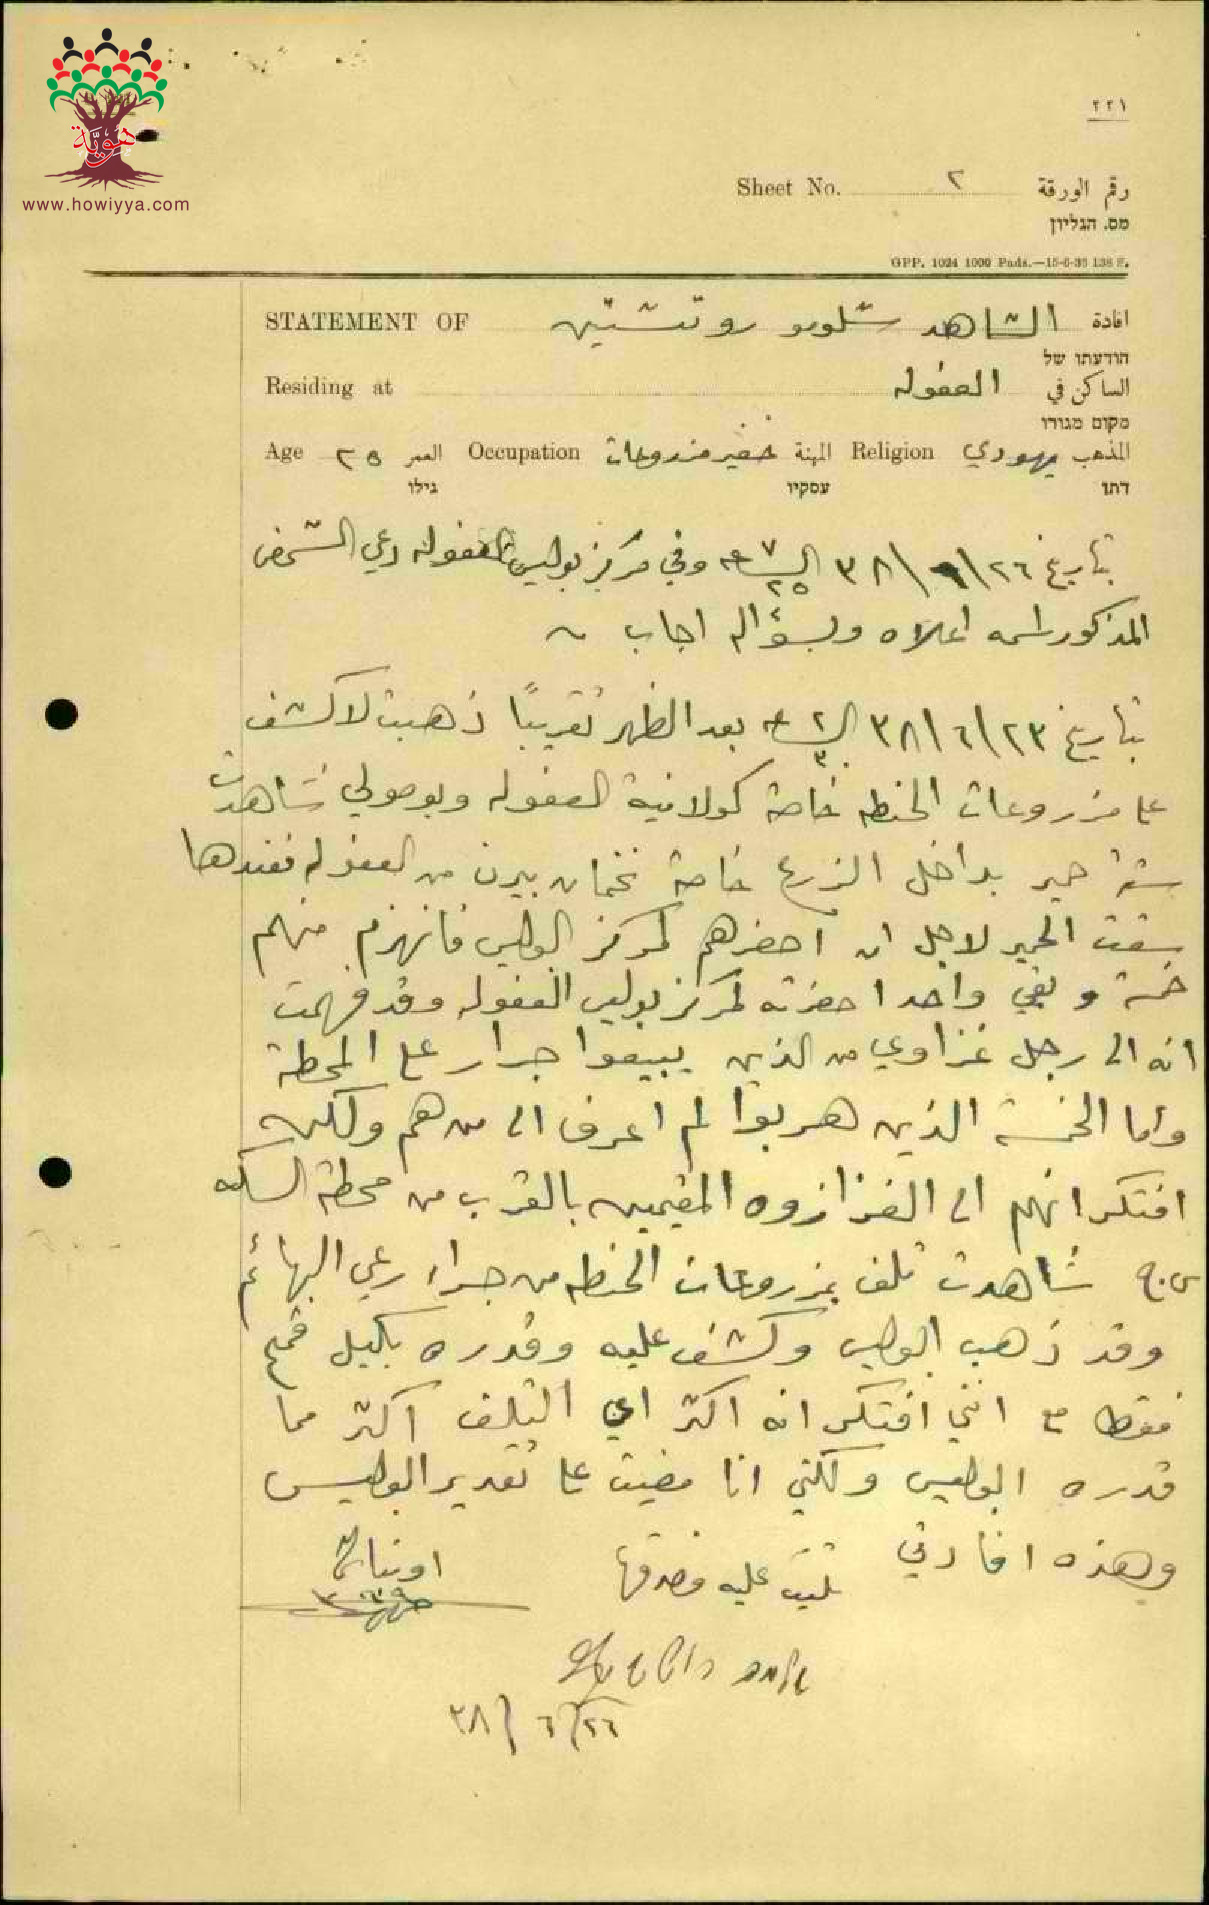 هوية
www.howiyya.com
٢٢١
Sheet No. ٢ رقم الورقة
מס. הגליון
GPP. 1024 1000 Pads.—15-6-35 138 F.
STATEMENT OF الشاهد شلومو روتشتين افادة
הודעתו של
Residing at العفوله الساكن في
מקום מגורו
Age ٢٥ العمر Occupation خفير مزروعات المهنة Religion يهودي المذهب
גילו עסקיו דתו
بتاريخ ٢٦/٦/٣٨ الساعة ٧ ٢٥ وفي مركز بوليس العفوله دعي الشخص
المذكور اسمه اعلاه وبسؤاله اجاب
بتاريخ ٢٣/٦/٣٨ الساعة ٢ ٣٠ بعد الظهر تقريبًا ذهبت لاكشف
على مزروعات الحنطه خاصة كولانية العفوله وبوصولي شاهدت
ستة حمير بداخل الزرع خاصة نخمان من العفوله فعندها
سقت الحمير لاجل ان احضرهم لمركز البوليس فانهزم منهم
خمسة وبقي واحد احضرته لمركز بوليس العفوله وقد فهمت
انه الى رجل غزاوي من الذين يبيعوا جرار على المحطة
واما الخمسة الذين هربوا لم اعرف الى من هم ولكن
افتكر انهم الى الغزازوه المقيمين بالقرب من محطة السكه
س.ج شاهدت تلف بمزروعات الحنطه من جراء رعي البهائم
وقد ذهب البوليس وكشف عليه وقدره بكيل قمح
فقط مع انني افتكر انه اكثر اي التلف اكثر مما
قدره البوليس ولكني انا مضيت على تقدير البوليس
وهذه افادتي تليت عليه فصدقها
٢٦/٦/٣٨